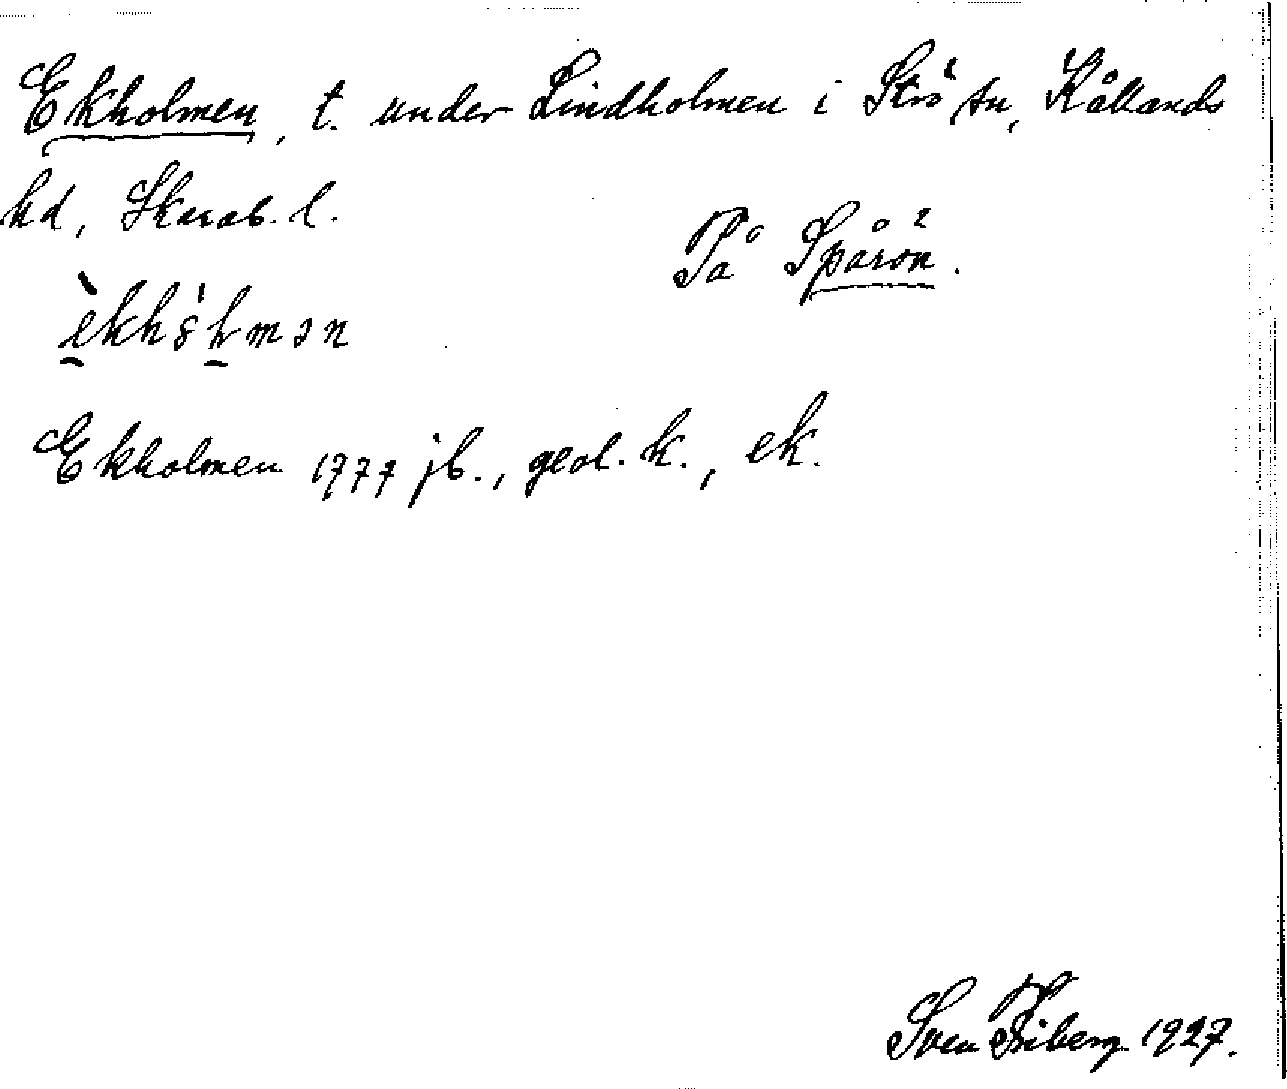 Ekholmen, t. under Lindholmen i Strö sn, Kållands
hd, Skarab. l.
På Spårön.
èkhòlmən
Ekholmen 1777 jb., geol. k., ek.
Sven Friberg 1927.